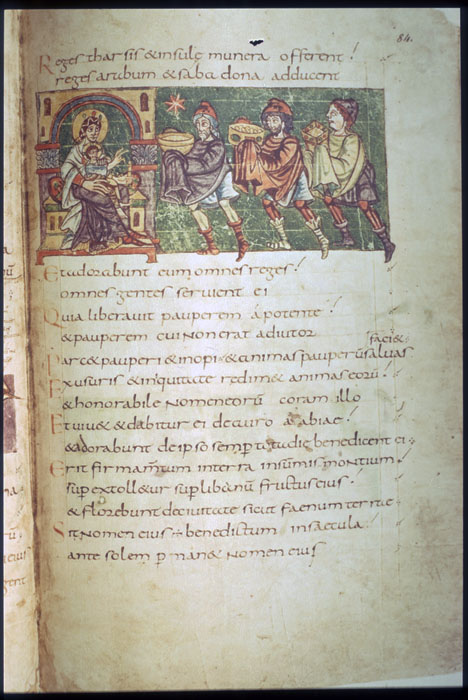 84.
Reges tharsis & insulę munera offerent!
reges arabum & saba dona adducent
Et adorabunt eum omnes reges!
omnes gentes servient ei
Quia liberavit pauperem a potente!
& pauperem cui non erat adiutor
Parc& pauperi & inopi & animas pauperū salvas faci&
Ex usuris & iniquitate redim& animas eorū!
& honorabile nomen eorū coram illo
Et viv& & dabitur ei de auro arabiae!
& adorabunt de ipso semp tota die benedicent ei
Erit firmamtum in terra in sūmis montium!
sup extoll&ur sup libanū fructus eius!
& florebunt de civitate sicut faenum terrae
Sit nomen eius benedictum in saecula!
ante solem pman& nomen eius